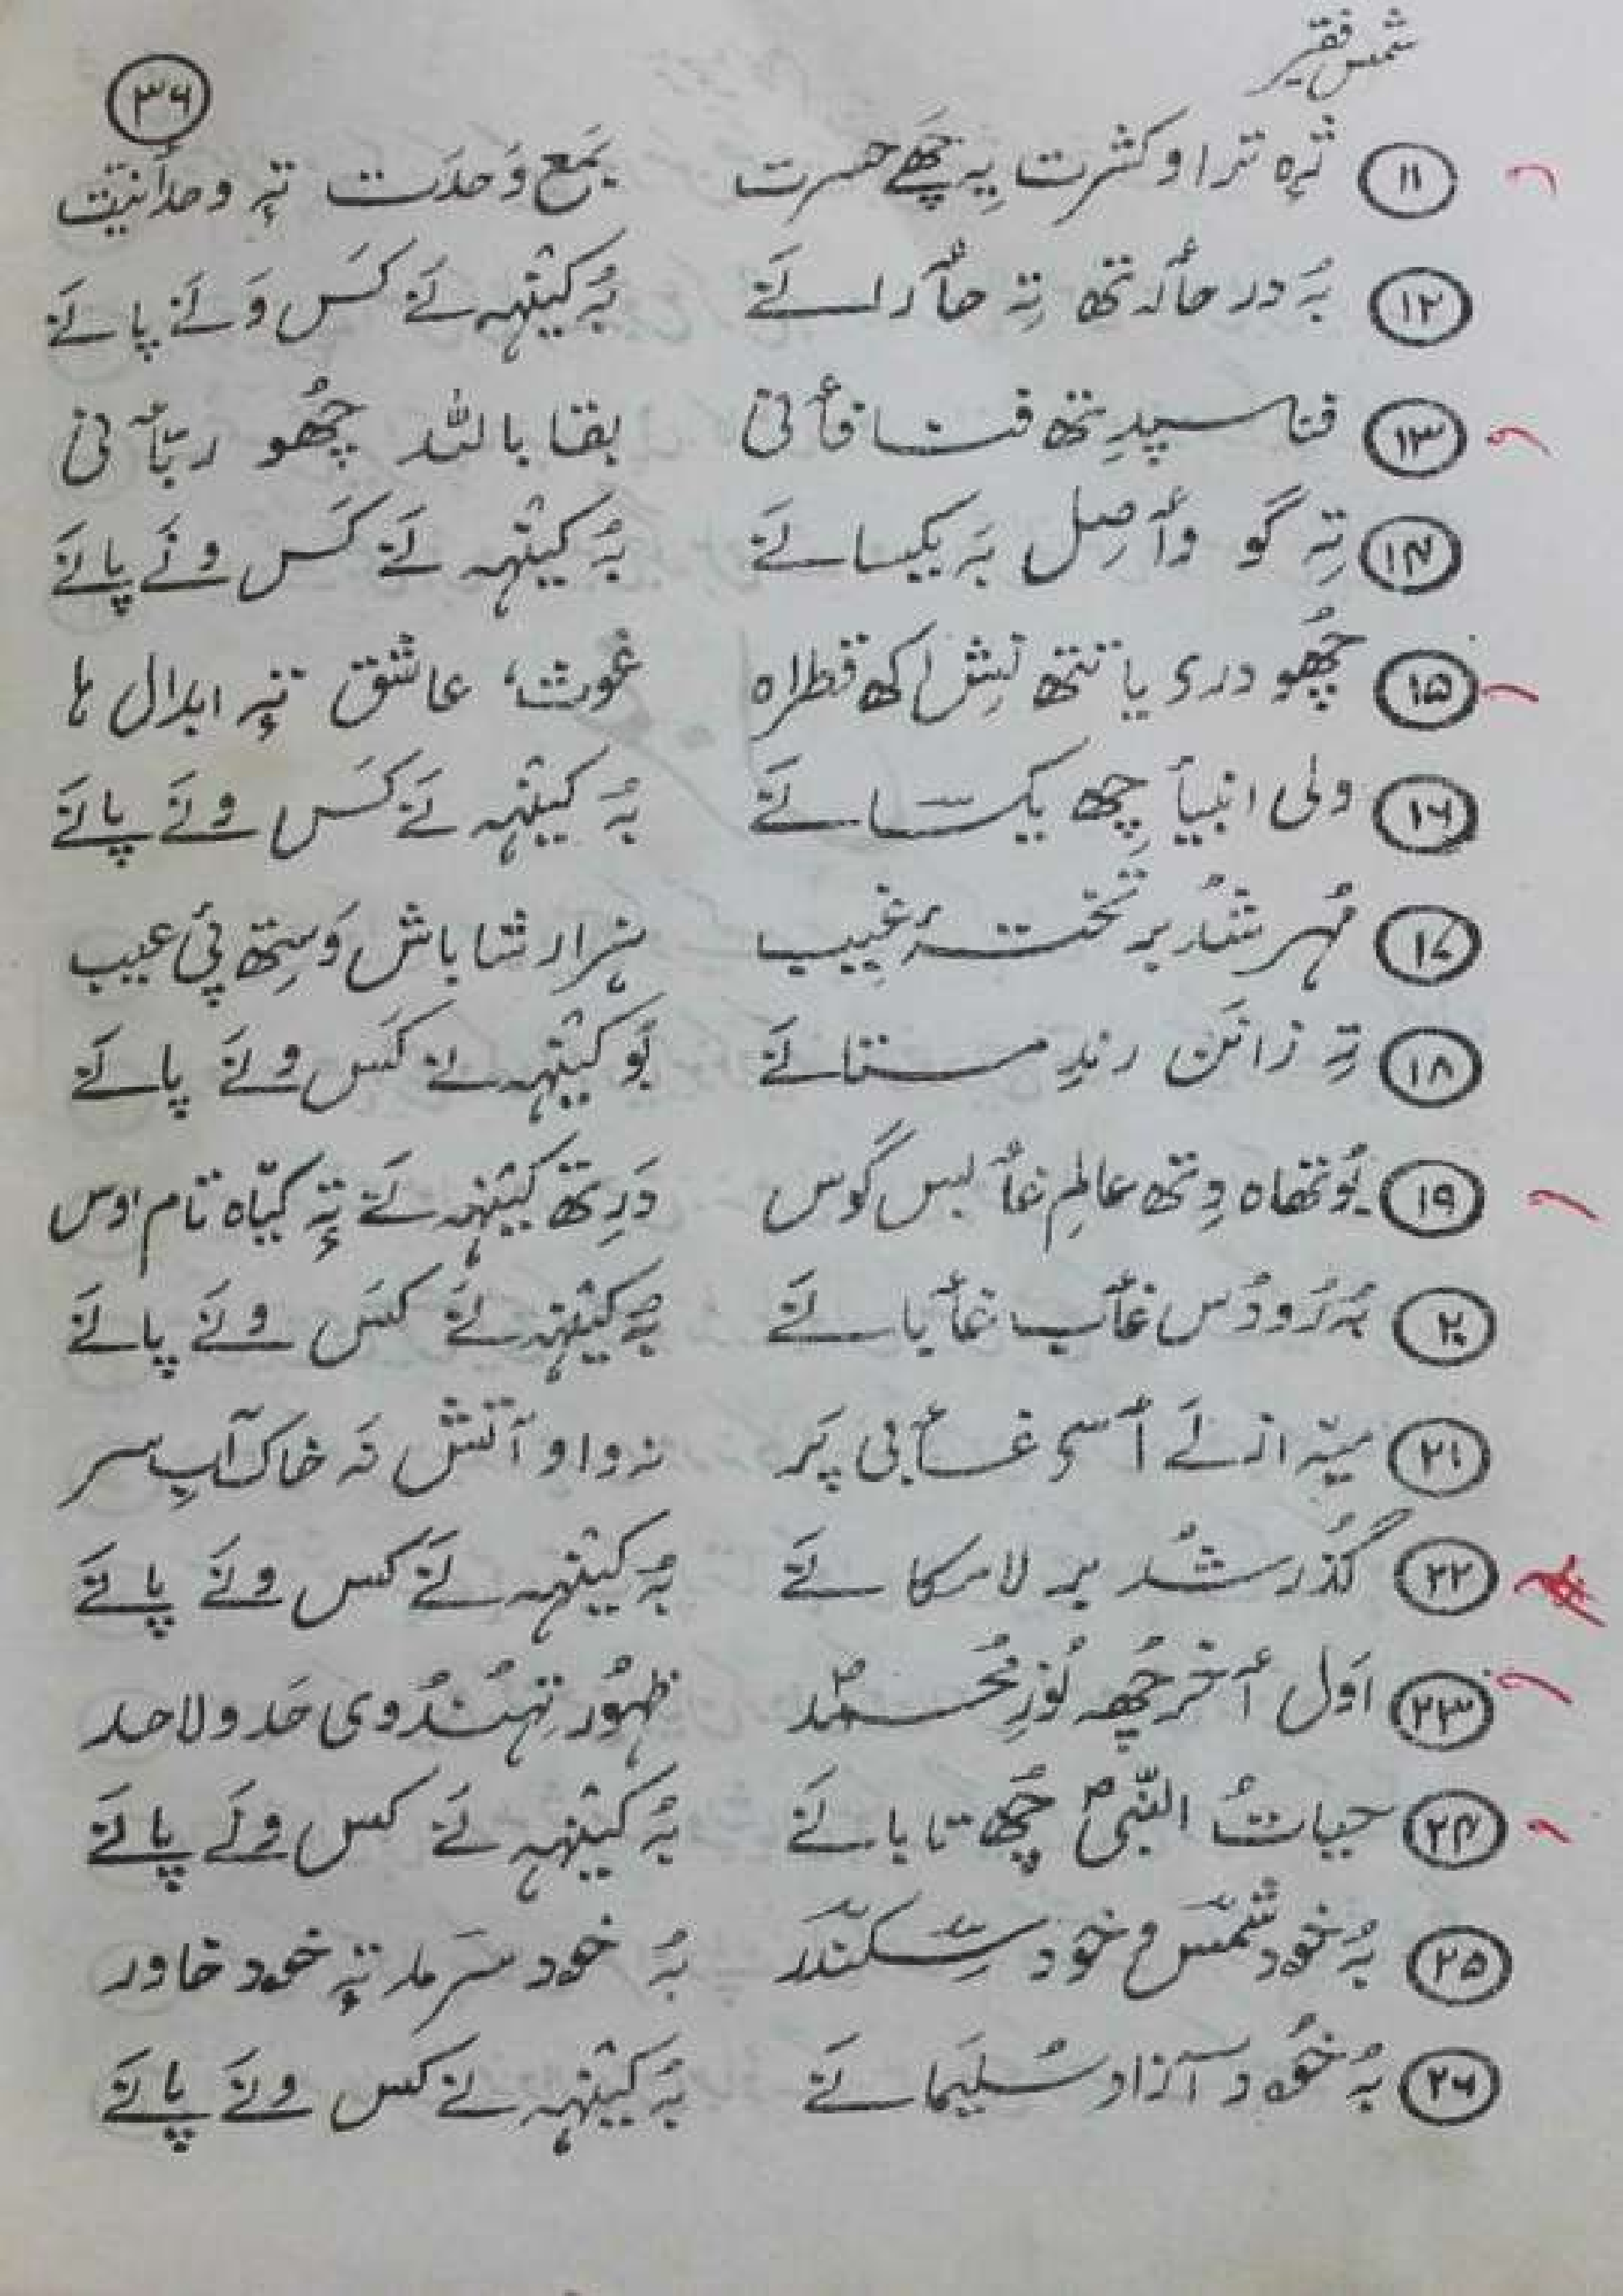 شمس فقیر
۳۶
۱۱ ترٛہ تراو کثرت یہِ چھَے حسرت جمع وَحدَت تہٕ وحدٲنیَت
۱۲ بہٕ در حٲرتھ تہِ حٲرانَے بہُ کینٛہہ نَے کَس وَنَے پانَے
۱۳ فنا سپدِتھ فنا فٲنی بقا باللہ چھُو ربٲنی
۱۴ تہِ گو وٲصِل بہَ یکسانَے بہُ کینٛہہ نَے کَس ونَے پانَے
۱۵ چھُو دری یا تتھ نِش اکھ قطراہ غوث، عاشق تہٕ ابدال ہا
۱۶ ولی انبیأ چِھ یکسانَے بہُ کینٛہہ نَے کَس ونَے پانَے
۱۷ مُہر شُد بر تختہٕ غیب ہزار شاباش وَسِتھ پیٔ عیب
۱۸ تہِ زانَن رندِ مستانَے بو کینٛہہ نَے کَس ونَے پانَے
۱۹ یُوتھاہ وِتھ عالمِ غٲبس گوس دَرِتھ کینٛہہ نَے تہٕ کیّاہ تام اوس
۲۰ بہُ رُودُس غٲب غٲیانَے بہٕ کینٛہہ نَے کَس ونَے پانَے
۲۱ میہٕ ازلَے أسی غٲبی پَر نہ واو آتش نَہ خاک آبِ سر
۲۲ گُذر شُد بر لامکانَے بہُ کینٛہہ نَے کس ونَے پانَے
۲۳ اَول أخر چھُہ نُورِ مُحمدؐ ظہُور تِہُندُوی حَد و لاحد
۲۴ حیاتُ النّبیؐ چھُ تابانَے بہُ کینٛہہ نَے کس ونَے پانَے
۲۵ بہُ خود شمسؔ و خود سِکندَر بہُ خود سَرمد تہٕ خود خاور
۲۶ بہُ خود آزاد سُلیمانَے بہُ کینٛہہ نَے کس ونَے پانَے